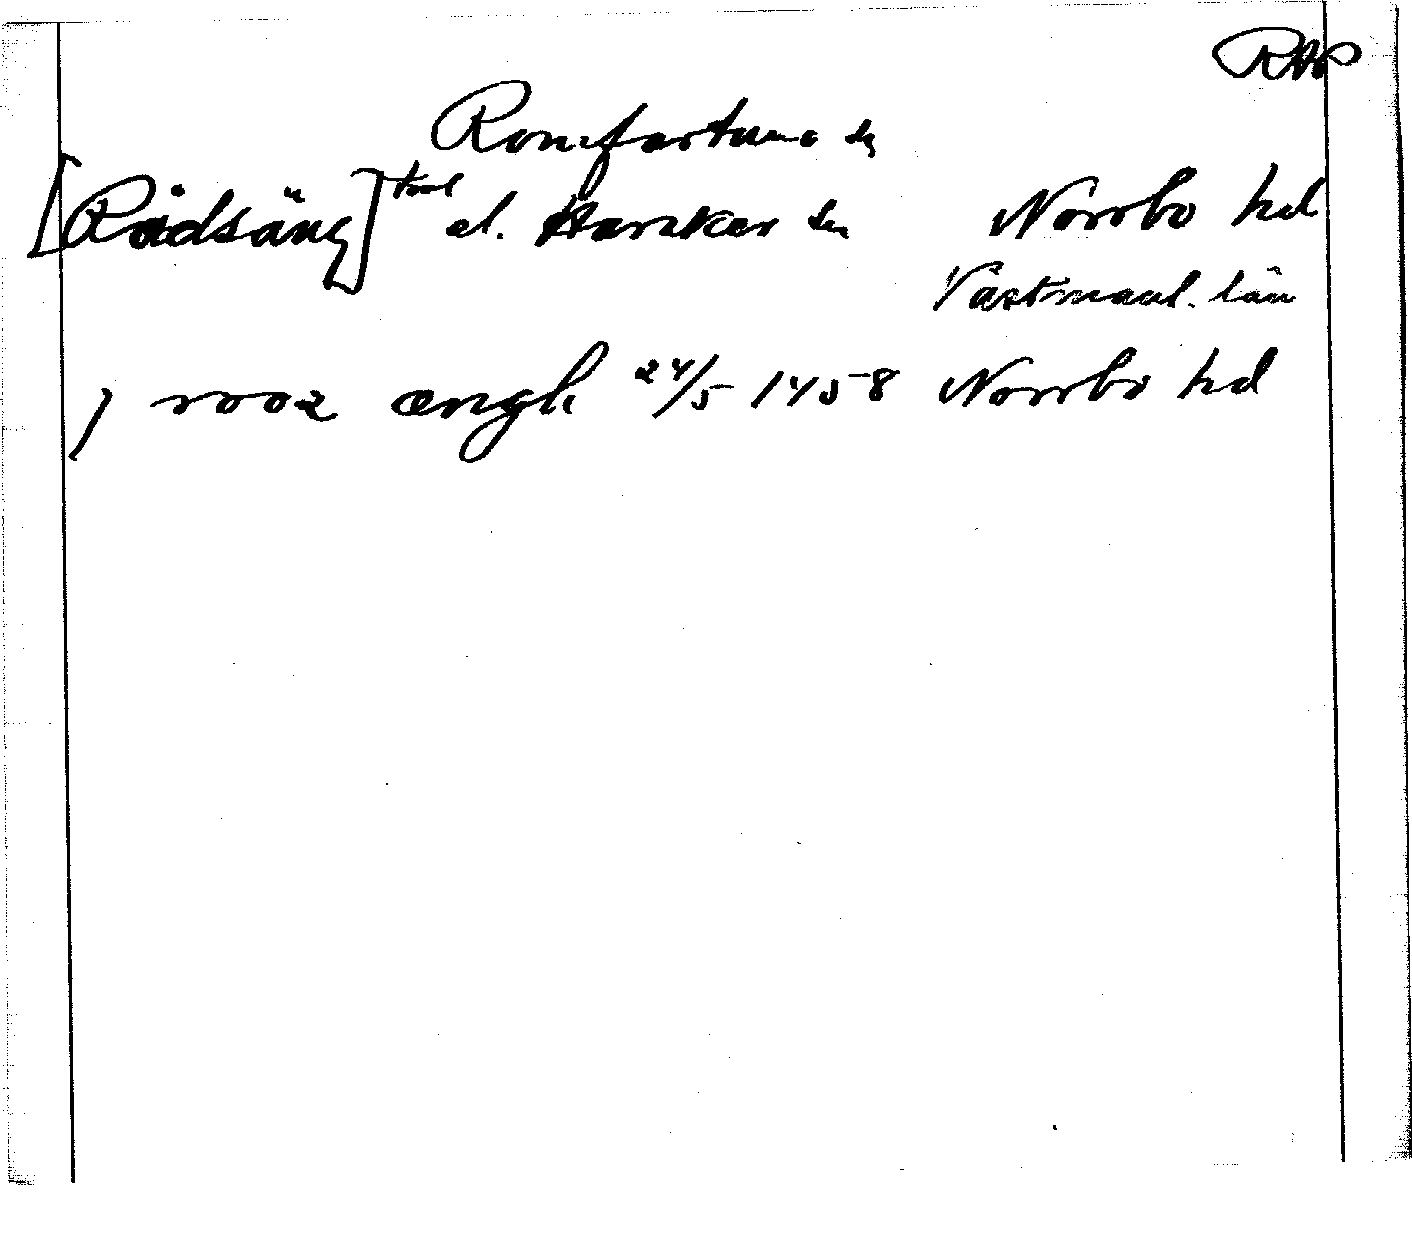 RAP
Romfartuna sn
[Rådsäng] trol el. Haraker sn Norrbo hd
Västmanl. län
j rooz ængh 24/5 1458 Norrbo hd